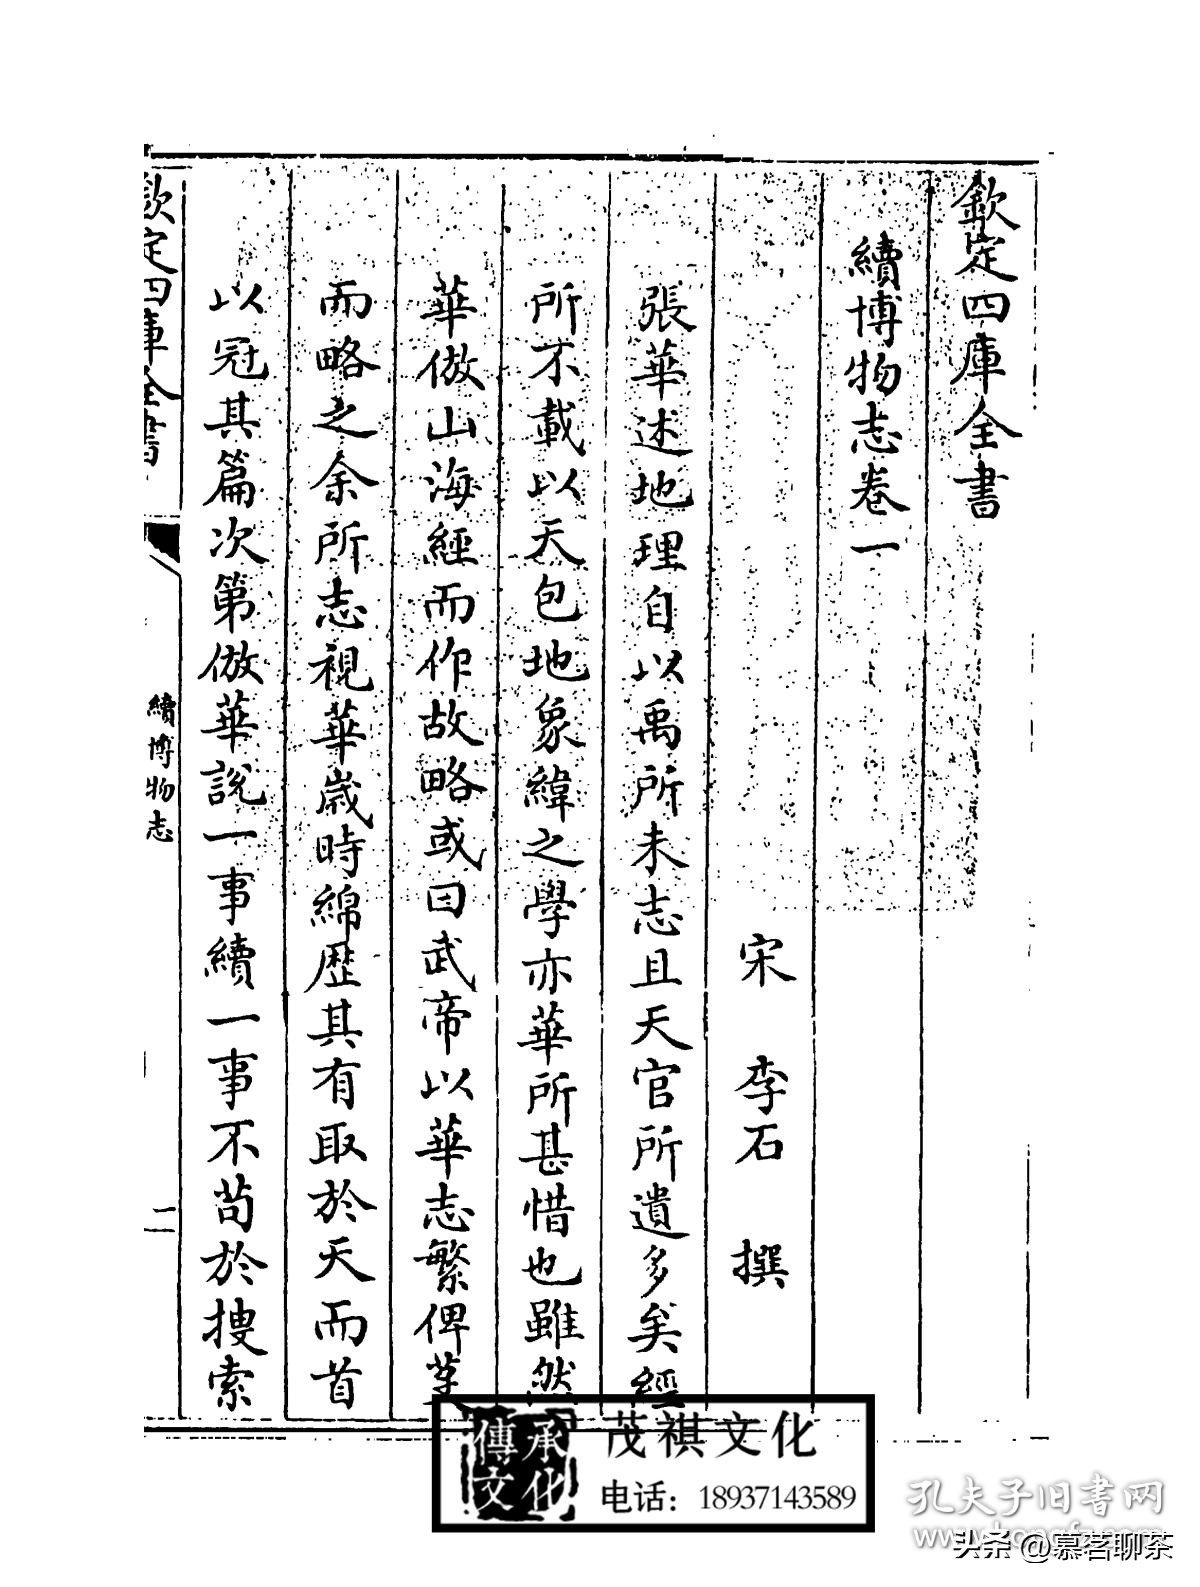 欽定四庫全書
續博物志卷一
宋 李石 撰
張華述地理自以禹所未志且天官所遺多矣經
所不載以天包地象緯之學亦華所甚惜也雖然
華倣山海經而作故略或曰武帝以華志繁俾芟
而略之余所志視華歲時綿歷其有取於天而首
以冠其篇次第倣華說一事續一事不苟於搜索
欽定四庫全書
續博物志
二
傳承文化
茂祺文化
电话：18937143589
孔夫子旧书网
头条 @慕茗聊茶